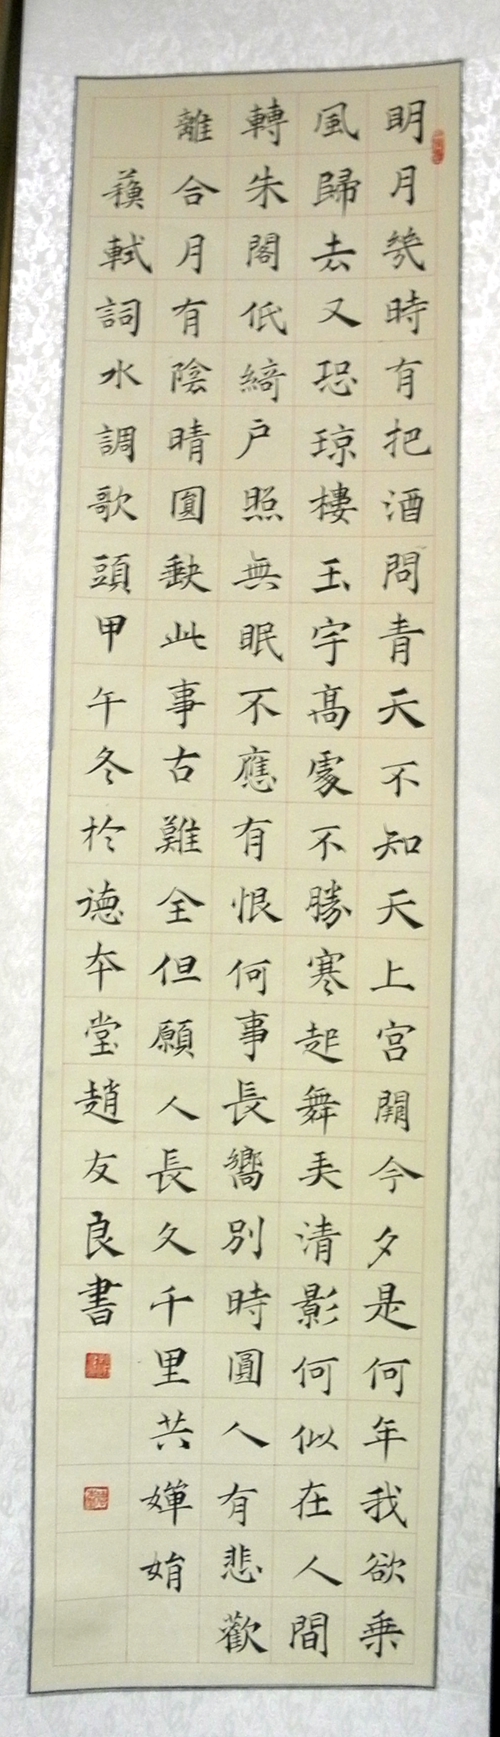 明月幾時有把酒問青天不知天上宮闕今夕是何年我欲乗
風歸去又恐琼樓玉宇髙處不勝寒起舞弄清影何似在人間
轉朱閣低綺户照無眠不應有恨何事長嚮別時圓人有悲歡
離合月有陰晴圓缺此事古難全但願人長久千里共嬋娟
蘇軾詞水調歌頭甲午冬於德本堂趙友良書